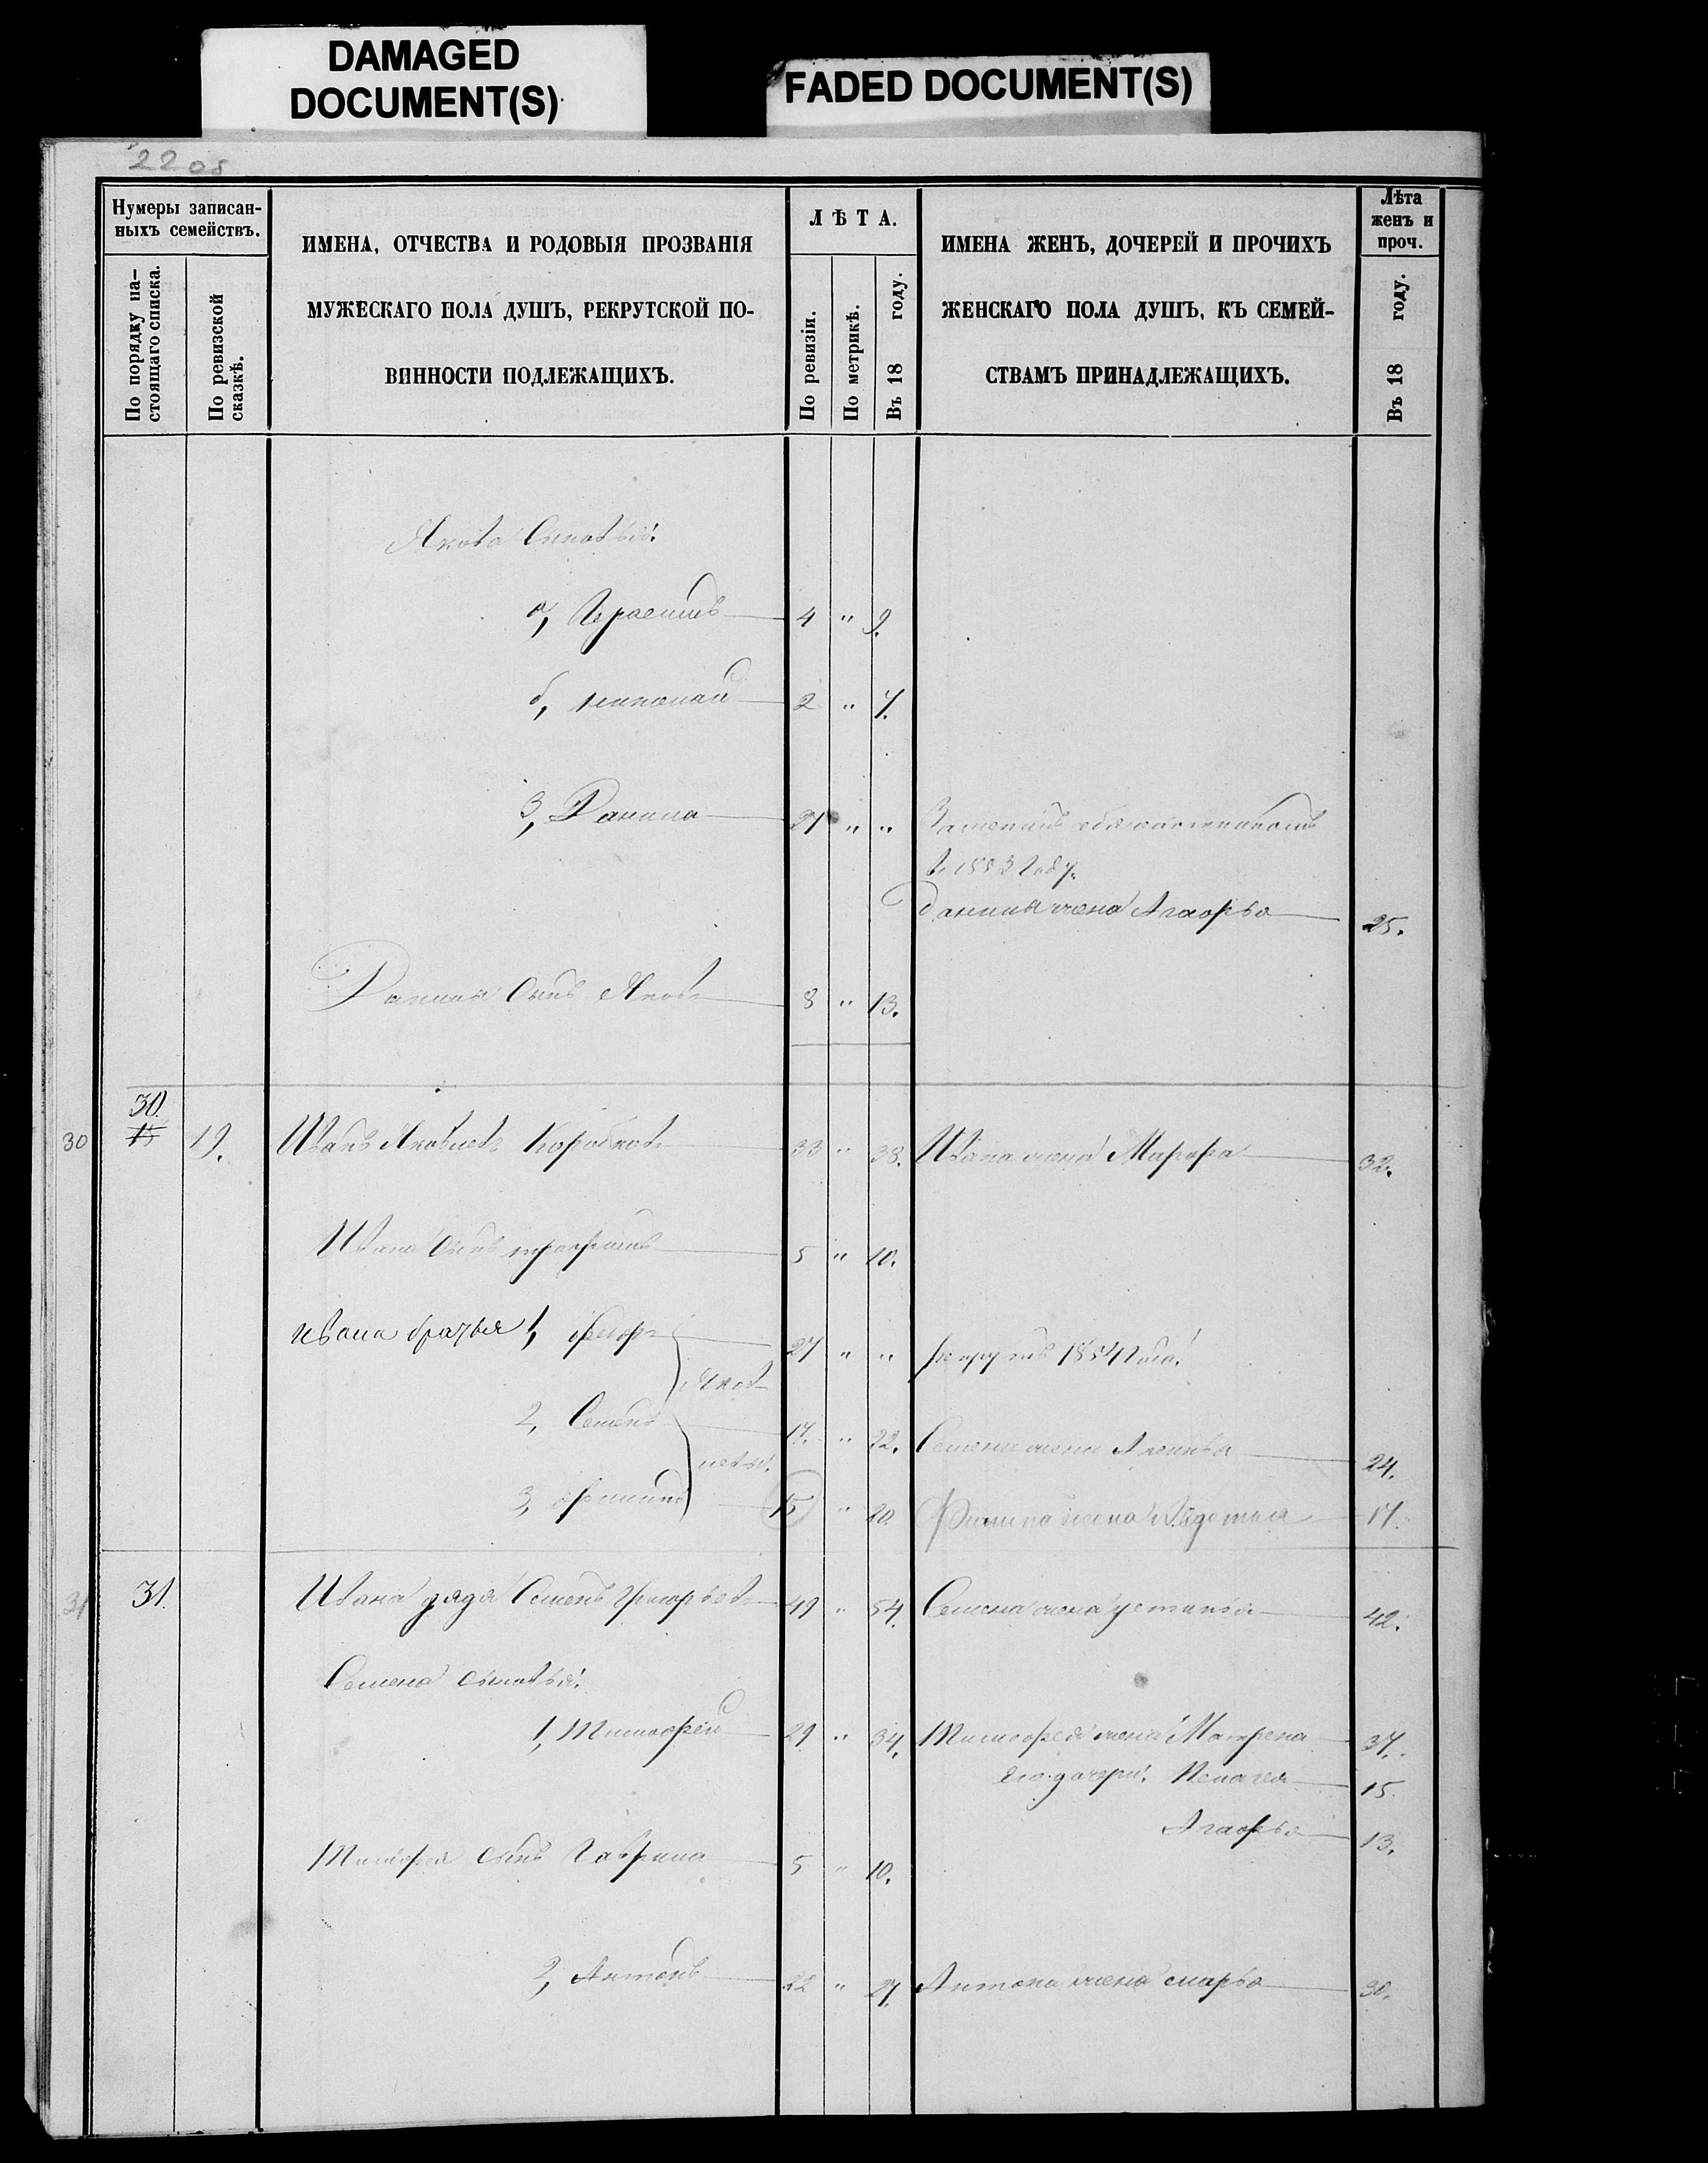 DAMAGED
DOCUMENT(S)
FADED DOCUMENT(S)
22 об
Нумеры записан-
ныхъ семействъ.
По порядку на-
стоящаго списка.
По ревизской
сказкѣ.
ИМЕНА, ОТЧЕСТВА И РОДОВЫЯ ПРОЗВАНІЯ
МУЖЕСКАГО ПОЛА ДУШЪ, РЕКРУТСКОЙ ПО-
ВИННОСТИ ПОДЛЕЖАЩИХЪ.
ЛѢТА.
По ревизіи.
По метрикѣ.
Въ 18 году.
ИМЕНА ЖЕНЪ, ДОЧЕРЕЙ И ПРОЧИХЪ
ЖЕНСКАГО ПОЛА ДУШЪ, КЪ СЕМЕЙ-
СТВАМЪ ПРИНАДЛЕЖАЩИХЪ.
Лѣта
женъ и
проч.
Въ 18 году.
Якова Сыновья:
а, Герасимъ 4 " 9.
б, николай 2 " 7.
3, Данила 21 " "
в 1853 году.
Данилы жена Агафья 25.
Данилы Сынъ Яковъ 8 " 13.
30 30. 15 19. Иванъ Яковлевъ Коробковъ 33 " 38. Ивана жена 32.
Ивана Сынъ трофимъ 5 " 10.
Ивана братья 1, 27 " " рекрутъ 1854 года.
Яков-
2, Семенъ 17. " 22. Семена жена 24.
левы.
3, филипъ 15 " 20. Филипа жена 17.
31 31. Ивана дядя Семенъ Григорьевъ 49 " 54. Семена жена устинья 42.
Семена сыновья:
1, Тимофей 29 " 34. Тимофея жена Матрена 37.
Его дочери: Пелагея 15.
Агафья 13.
Тимофея сынъ Гаврила 5 " 10.
2, Антонъ 22 " 27. Антона жена марья 30.